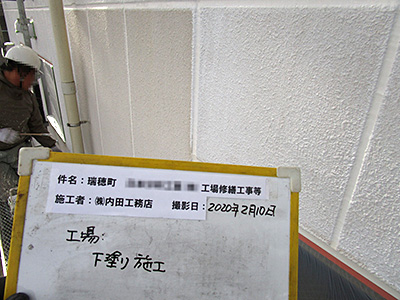 件名：瑞穂町 工場修繕工事等
施工者：㈱内田工務店 撮影日：2020年2月10日
工場
下塗り施工